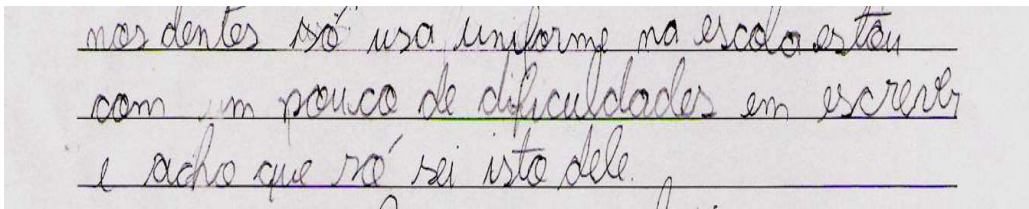 nos dentes só usa uniforme na escola estou
com um pouco de dificuldades em escrever
e acho que só sei isto dele.